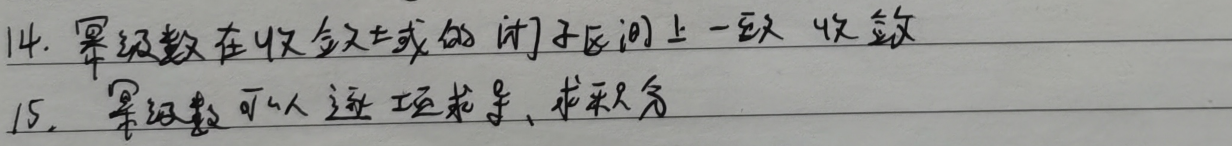 14. 幂级数在收敛域的闭子区间上一致收敛
15. 幂级数可以逐项求导、求积分